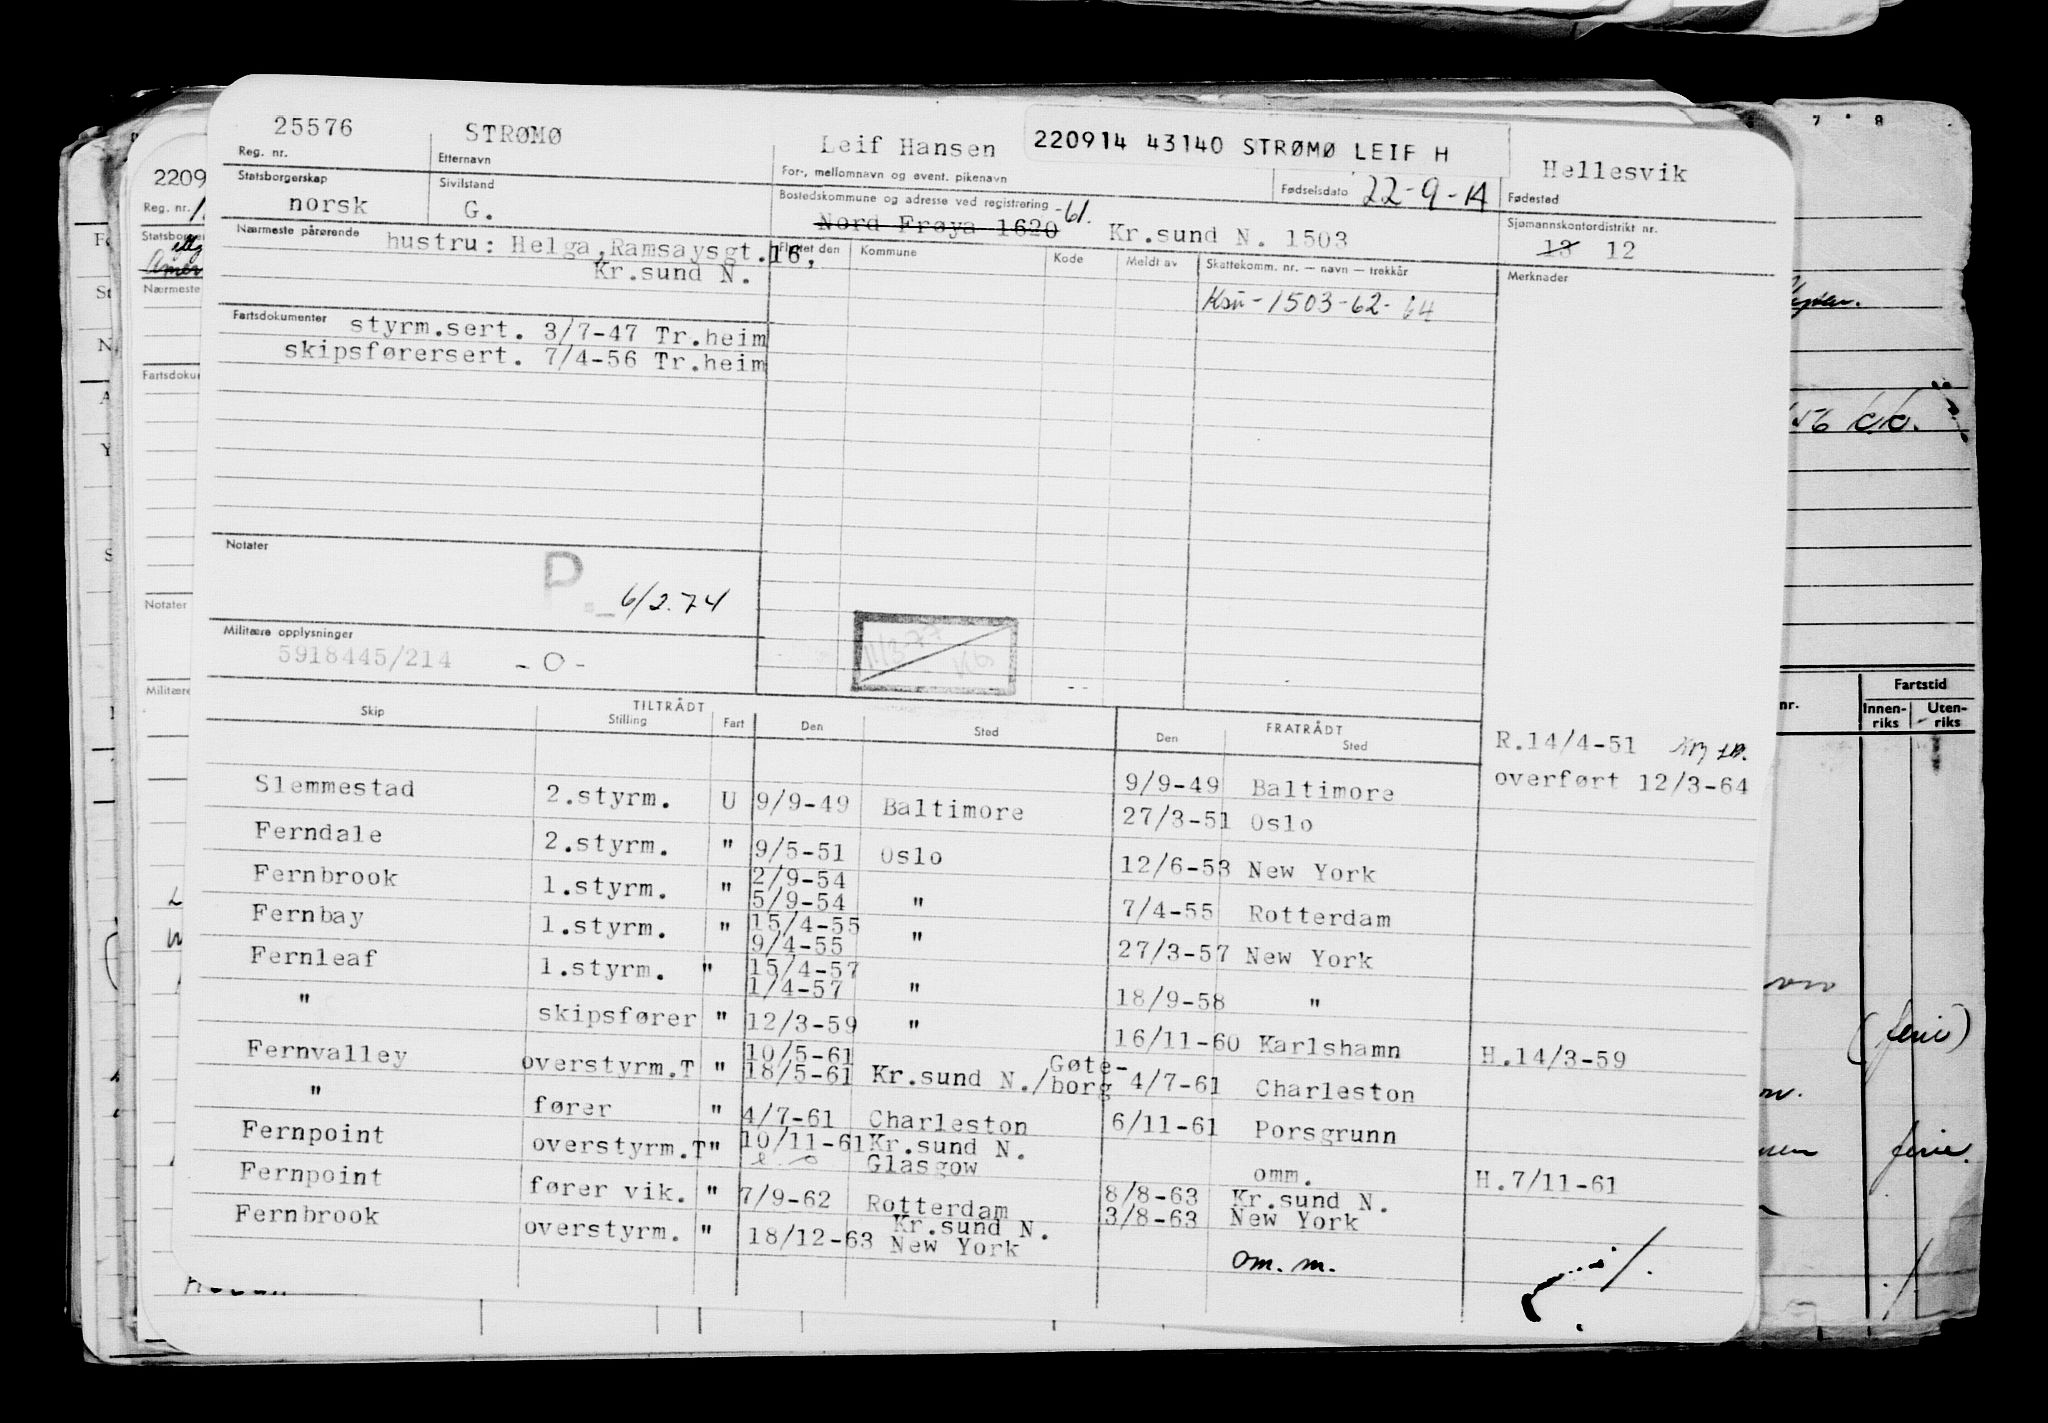 25576 STRØMØ Leif Hansen 220914 43140 STRØMØ LEIF H Hellesvik
Reg. nr. Etternavn For-, mellomnavn og event. pikenavn Fødselsdato 22-9-14 Fødested
Statsborgerskap Sivilstand Bostedskommune og adresse ved registrering -61. Sjømannskontordistrikt nr.
norsk G. Nord Frøya 1620 Kr.sund N. 1503 13 12
Nærmeste pårørende hustru: Helga,Ramsaysgt.16, Flyttet den Kommune Kode Meldt av Skattekomm. nr. — navn — trekkår Merknader
Kr.sund N.
Ksu-1503-62-64
Fartsdokumenter styrm.sert. 3/7-47 Tr.heim
skipsførersert. 7/4-56 Tr.heim
Notater
P. 6/2.74
Militære opplysninger
5918445/214 -O-
TILTRÅDT FRATRÅDT
Skip Stilling Fart Den Sted Den Sted
R.14/4-51
overført 12/3-64
9/9-49 Baltimore
Slemmestad 2.styrm. U 9/9-49 Baltimore 27/3-51 Oslo
Ferndale 2.styrm. " 9/5-51 Oslo 12/6-53 New York
2/9-54
Fernbrook 1.styrm. " 5/9-54 " 7/4-55 Rotterdam
15/4-55
Fernbay 1.styrm. " 9/4-55 " 27/3-57 New York
15/4-57
Fernleaf 1.styrm. " 1/4-57 " 18/9-58 "
" skipsfører " 12/3-59 " 16/11-60 Karlshamn H.14/3-59
10/5-61 Gøte-
Fernvalley overstyrm.T " 18/5-61 Kr.sund N./borg 4/7-61 Charleston
" fører " 4/7-61 Charleston 6/11-61 Porsgrunn
10/11-61 Kr.sund N.
Fernpoint overstyrm.T " Glasgow omm. H.7/11-61
8/8-63 Kr.sund N.
Fernpoint fører vik. " 7/9-62 Rotterdam 3/8-63 New York
Kr.sund N.
Fernbrook overstyrm. " 18/12-63 New York om. m.
2209
Reg. nr.
Statsborger
Nærmeste
Fartsdoku
Notater
Militære
7 8
56
nr. Fartstid
Innen-riks Uten-riks
(ferie)
ferie.